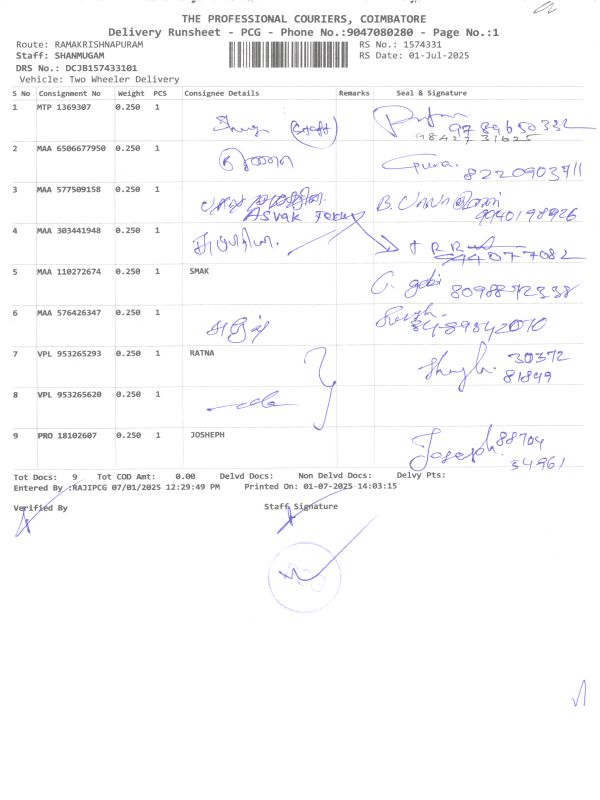 THE PROFESSIONAL COURIERS, COIMBATORE
Delivery Runsheet - PCG - Phone No.:9047080280 - Page No.:1
Route: RAMAKRISHNAPURAM RS No.: 1574331
Staff: SHANMUGAM RS Date: 01-Jul-2025
DRS No.: DCJB157433101
Vehicle: Two Wheeler Delivery
S No Consignment No Weight PCS Consignee Details Remarks Seal & Signature
1 MTP 1369307 0.250 1 (staff) 9789650332
9842731625
2 MAA 6506677950 0.250 1 8220903711
3 MAA 577509158 0.250 1 B.
9940198926
4 MAA 303441948 0.250 1
9444077082
5 MAA 110272674 0.250 1 SMAK G. gobi 8098892338
6 MAA 576426347 0.250 1
84-89842070
7 VPL 953265293 0.250 1 RATNA 30372
81849
8 VPL 953265620 0.250 1
9 PRO 18102607 0.250 1 JOSHEPH Joseph. 88704
54961
Tot Docs: 9 Tot COD Amt: 0.00 Delvd Docs: Non Delvd Docs: Delvy Pts:
Entered By :RAJIPCG 07/01/2025 12:29:49 PM Printed On: 01-07-2025 14:03:15
Verified By Staff Signature